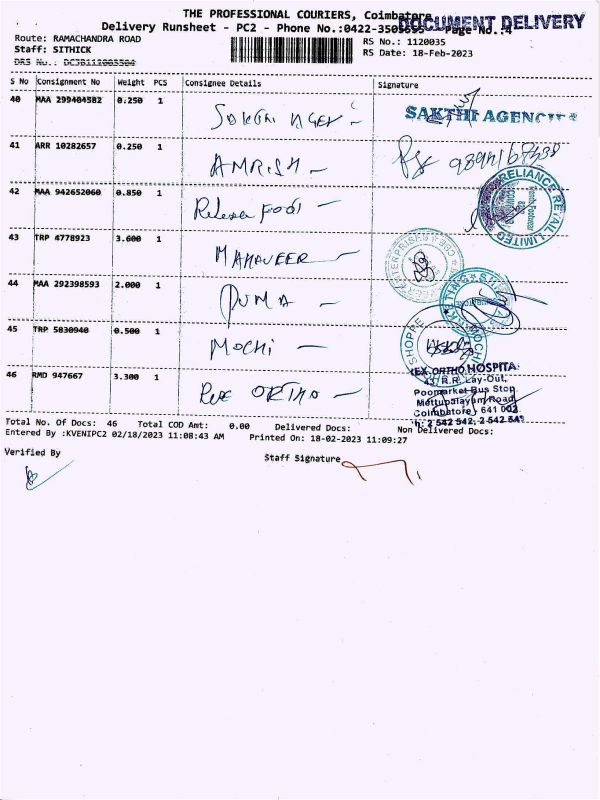 THE PROFESSIONAL COURIERS, Coimbatore
DOCUMENT DELIVERY
Delivery Runsheet - PC2 - Phone No.:0422-3505655 Page No.:4
Route: RAMACHANDRA ROAD
RS No.: 1120035
Staff: SITHICK
RS Date: 18-Feb-2023
DRS No.: DCJB112003504
S No Consignment No Weight PCS Consignee Details Signature
40 MAA 299404582 0.250 1
SAKTHI AGENCIES
41 ARR 10282657 0.250 1 AMRISH
42 MAA 942652060 0.850 1
RELIANCE RETAIL LIMITED
43 TRP 4778923 3.600 1 MAHAVEER
ENTERPRISES
44 MAA 292398593 2.000 1 PUMA
45 TRP 5030940 0.500 1 MOCHI
MOCHI SHOPPE
46 RMD 947667 3.300 1 REX ORTHO
REX ORTHO HOSPITAL
43, R.R. Lay-Out,
Poomarket Bus Stop
Mettupalayam Road,
Coimbatore, 641 002
Ph: 2 542 542, 2 542 541
Total No. Of Docs: 46 Total COD Amt: 0.00 Delivered Docs: Non Delivered Docs:
Entered By :KVENIPC2 02/18/2023 11:08:43 AM Printed On: 18-02-2023 11:09:27
Verified By
Staff Signature